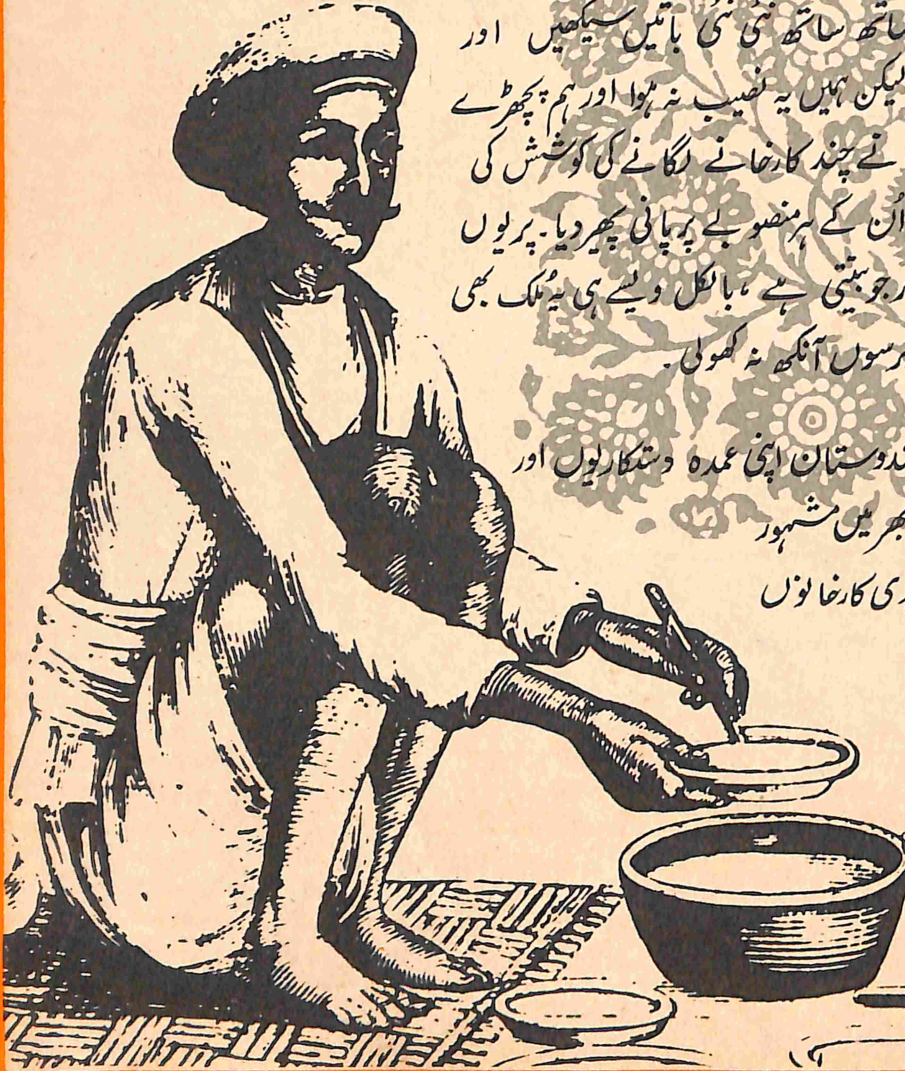 ساتھ ساتھ نئی نئی باتیں سیکھیں اور
لیکن ہمیں یہ نصیب نہ ہوا اور ہم پچھڑے
نے چند کارخانے لگانے کی کوشش کی
اُن کے ہر منصوبے پر پانی پھر دیا۔ پریوں
جو بیتی ہے ، بالکل ویسے ہی یہ مُلک بھی
برسوں آنکھ نہ کھولی۔
اپنی عمدہ دستکاریوں اور
بھر میں مشہور
کارخانوں